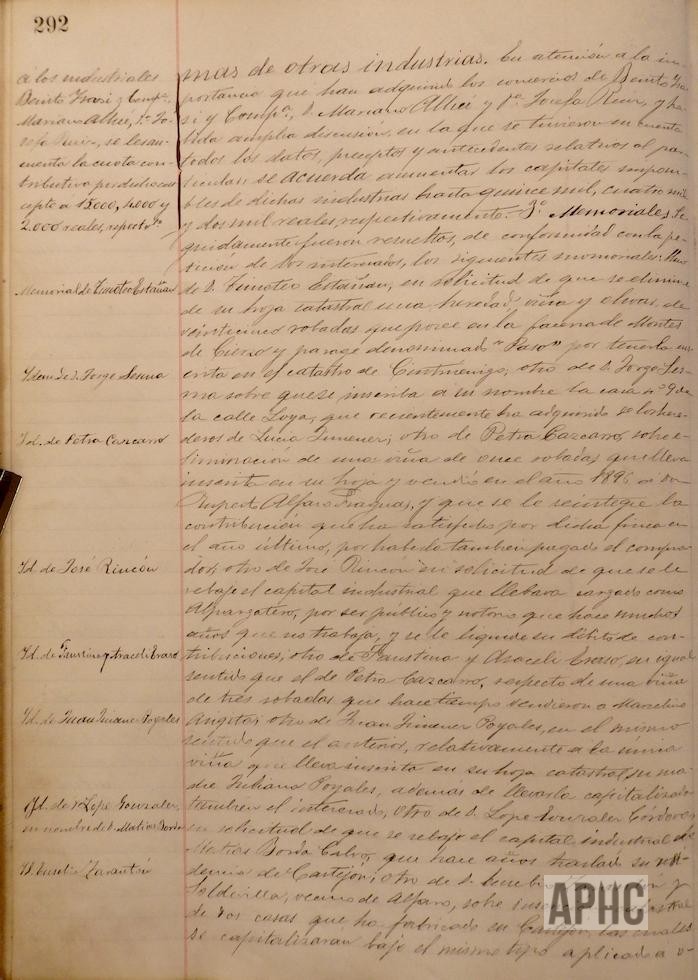 292
á los industriales
Benito Frasi y Compª,
Mariano Alhei, Dª Jo-
sefa Ruiz, se les au-
menta la cuota con-
tributiva por dichos con-
ceptos a 15.000, 4.000 y
2.000 reales, respectv.te
Memorial de Timoteo Estañan
Idem de D. Jorge Lesma
Id. de Petra Cazcarro
Id. de José Rincón
Id. de Faustina y Araceli Eraso
Id. de Juan Jimenez Poyales
Id. de D. Lope Gonzalez,
en nombre de D. Matias Borda
D. Eusebio
mas de otras industrias. En atención a la im-
portancia que han adquirido los comercios de Benito Fra-
si y Compª, D. Mariano Alhei y Dª Josefa Ruiz, y ha-
bida amplia discusion, en la que se tuvieron en cuenta
todos los datos, preceptos y antecedentes relativos al par-
ticular; se acuerda aumentar los capitales impon-
bles de dichas industrias hasta quince mil, cuatro mil
y dos mil reales, respectivamente. 3º Memoriales. Se-
guidamente fueron resueltos, de conformidad con la pe-
tición de los interesados, los siguientes memoriales: Uno
de D. Timoteo Estañan, en solicitud de que se elimine
de su hoja catastral una heredad, viña y olivar, de
veinticinco robadas que posee en la facería de Montes
de Cierzo y parage denominado "Paso" por tenerla ins-
crita en el catastro de Cintruenigo; otro de D. Jorge Les-
ma sobre que se inscriba a su nombre la casa nº 9 de
la calle Loya, que recientemente ha adquirido de los here-
deros de Lucia Jimenez; otro de Petra Cazcarro, sobre e-
liminación de una viña de once robadas que lleva
inscrita en su hoja y vendió en el año 1896 a don
Ruperto Alfaro Fraguas, y que se le reintegre la
contribución que ha satisfecho por dicha finca en
el año último, por haberlo tambien pagado el compra-
dor; otro de José Rincon en solicitud de que se le
rebaje el capital industrial que llebava cargado como
Alpargatero, por ser público y notorio que hace muchos
años que no trabaja, y se le liquide su débito de con-
tribuciones; otro de Faustina y Araceli Eraso, en igual
sentido que el de Petra Cazcarro, respecto de una viña
de tres robadas que hace tiempo vendieron a Marcelino
Angotos; otro de Juan Jimenez Poyales, en el mismo
sentido que el anterior, relativamente a la misma
viña que lleva inscrita en su hoja catastral su ma-
dre Juliana Poyales, además de llevarla capitalizada
tambien el interesado; otro de D. Lope Gonzalez Córdova,
en solicitud de que se rebaje el capital industrial de
Matias Borda Calvo, que hace años trasladó su resi-
dencia de Castejón; otro de D. Eusebio y
Soldevilla, vecino de Alfaro, sobre
de dos casas que ha fabricado en Castejón, las cuales
se capitalizarán bajo el mismo tipo aplicado a o-
APHC